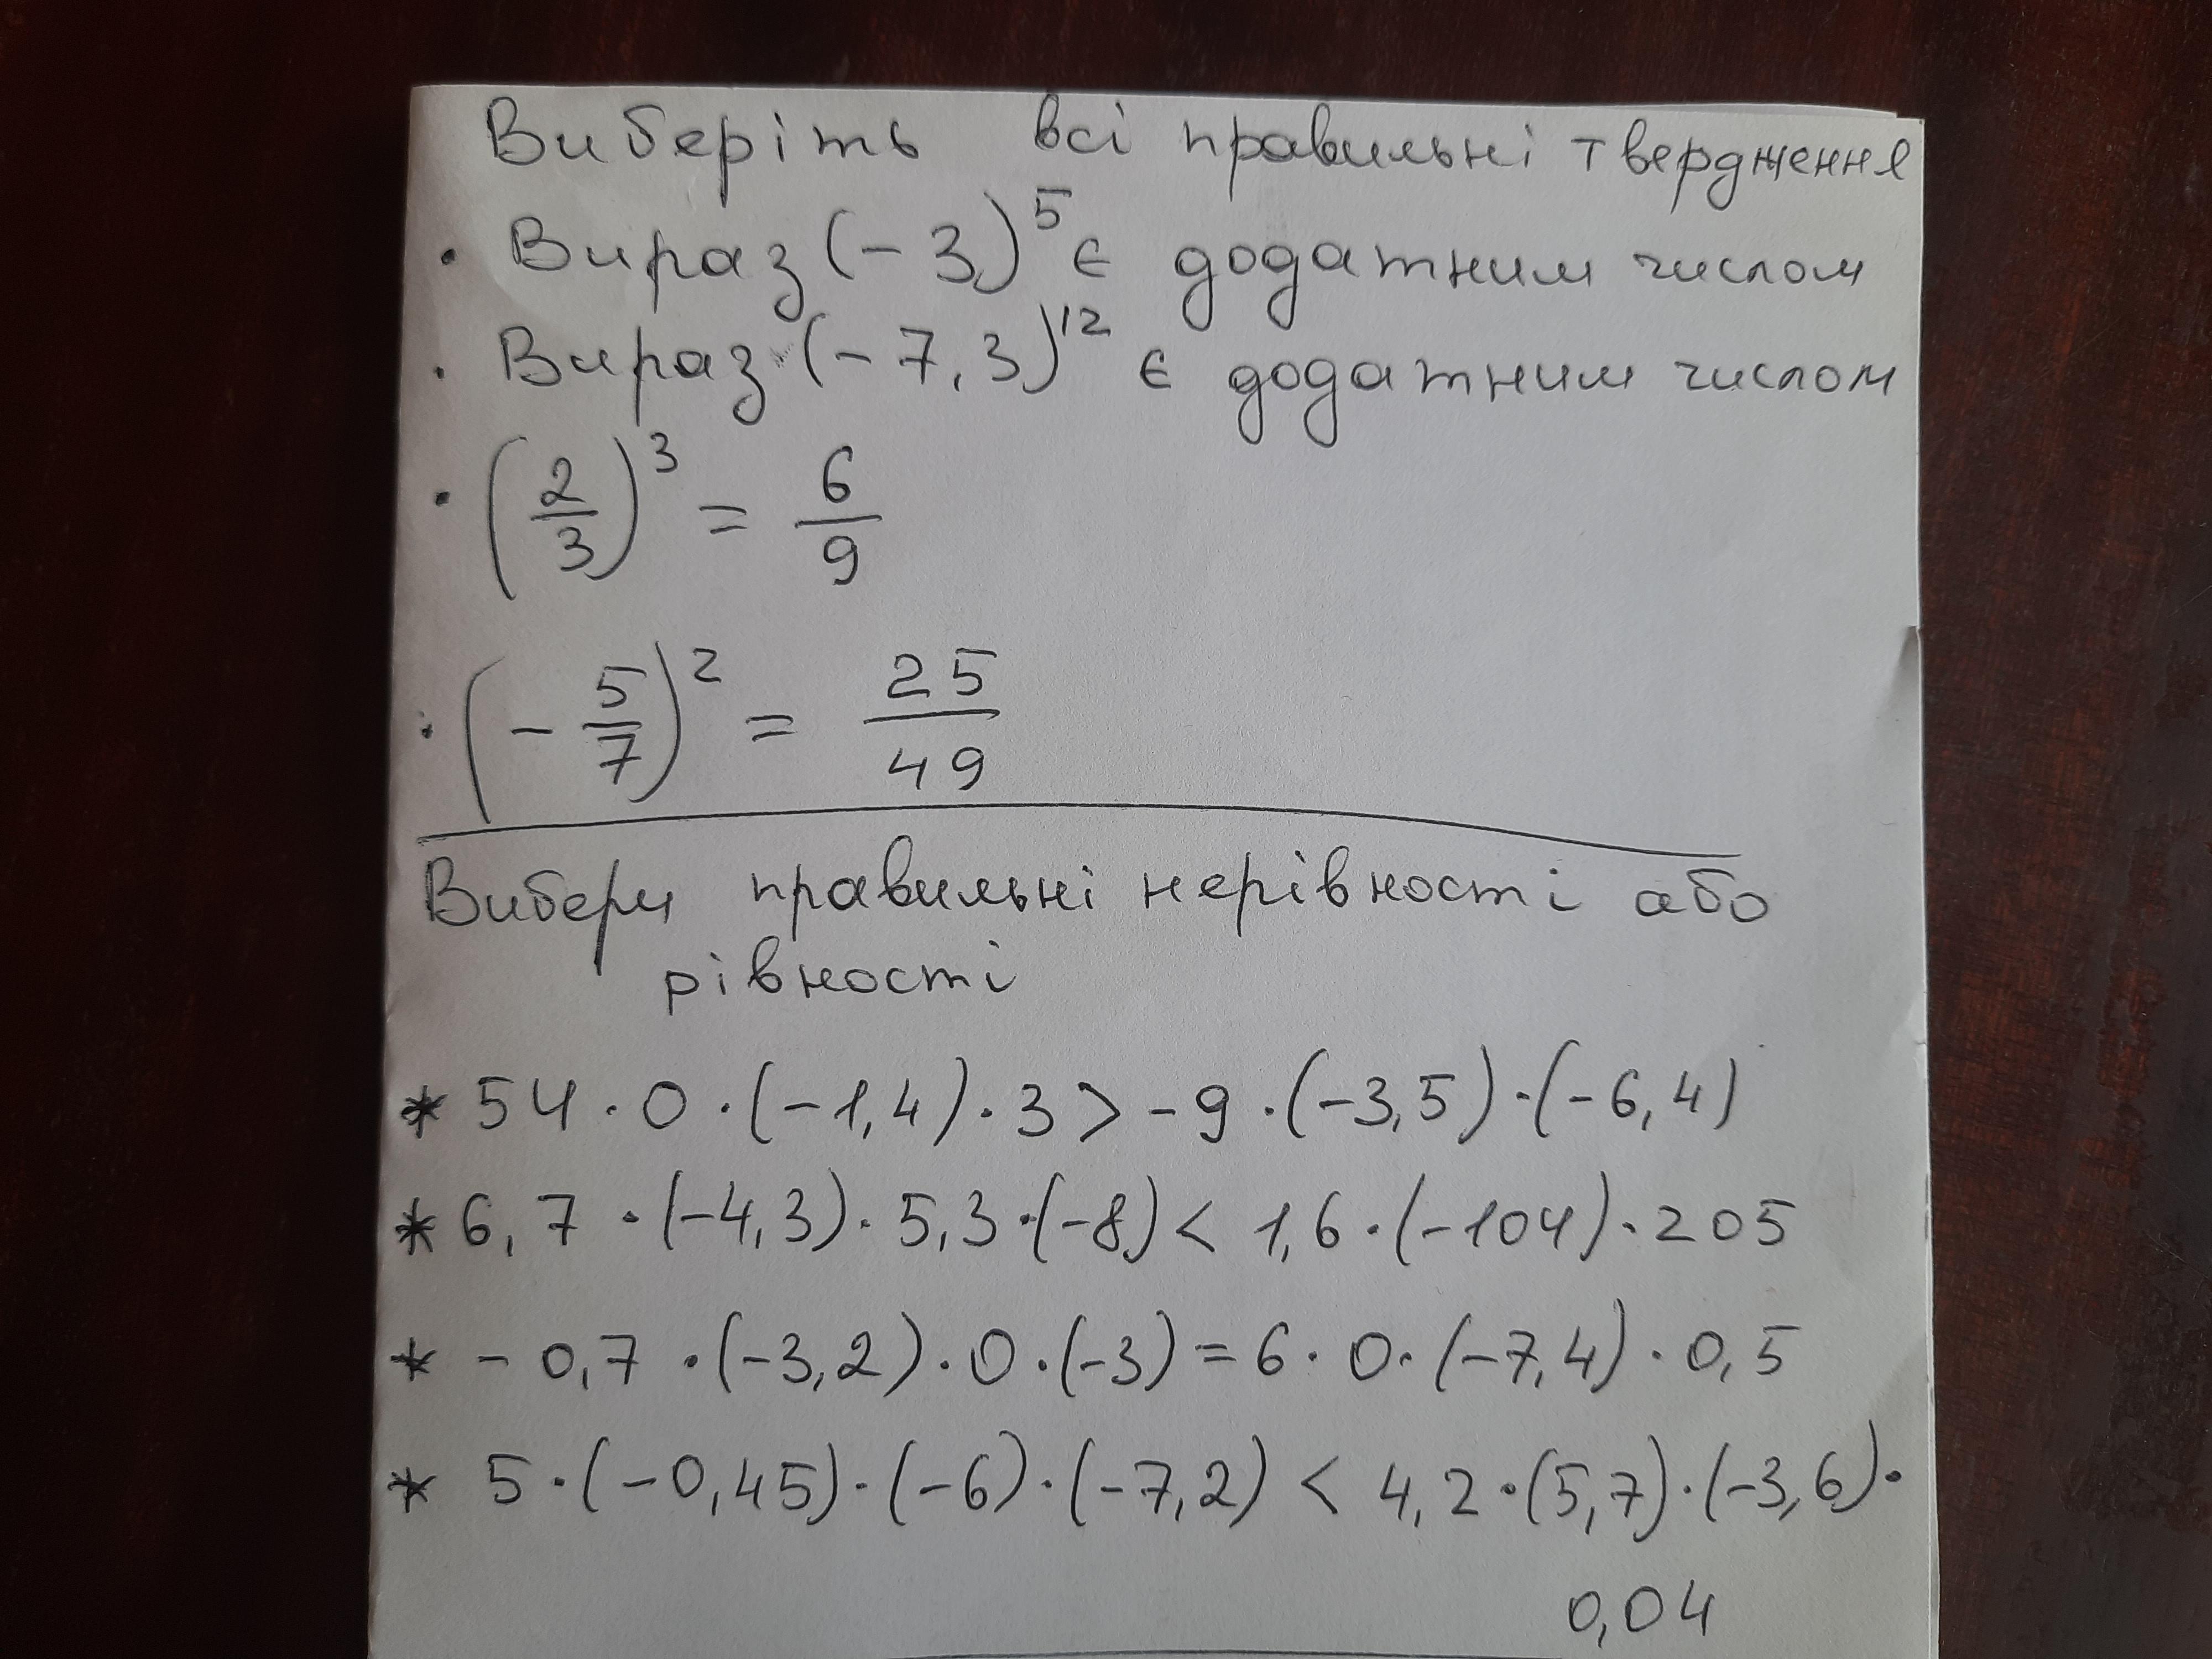 Виберіть всі правильні твердження
· Вираз (-3)⁵ є додатним числом
· Вираз (-7,3)¹² є додатним числом
· (2/3)³ = 6/9
· (-5/7)² = 25/49
Вибери правильні нерівності або
рівності
* 54 · 0 · (-1,4) · 3 > -9 · (-3,5) · (-6,4)
* 6,7 · (-4,3) · 5,3 · (-8) < 1,6 · (-104) · 205
* - 0,7 · (-3,2) · 0 · (-3) = 6 · 0 · (-7,4) · 0,5
* 5 · (-0,45) · (-6) · (-7,2) < 4,2 · (5,7) · (-3,6) ·
0,04